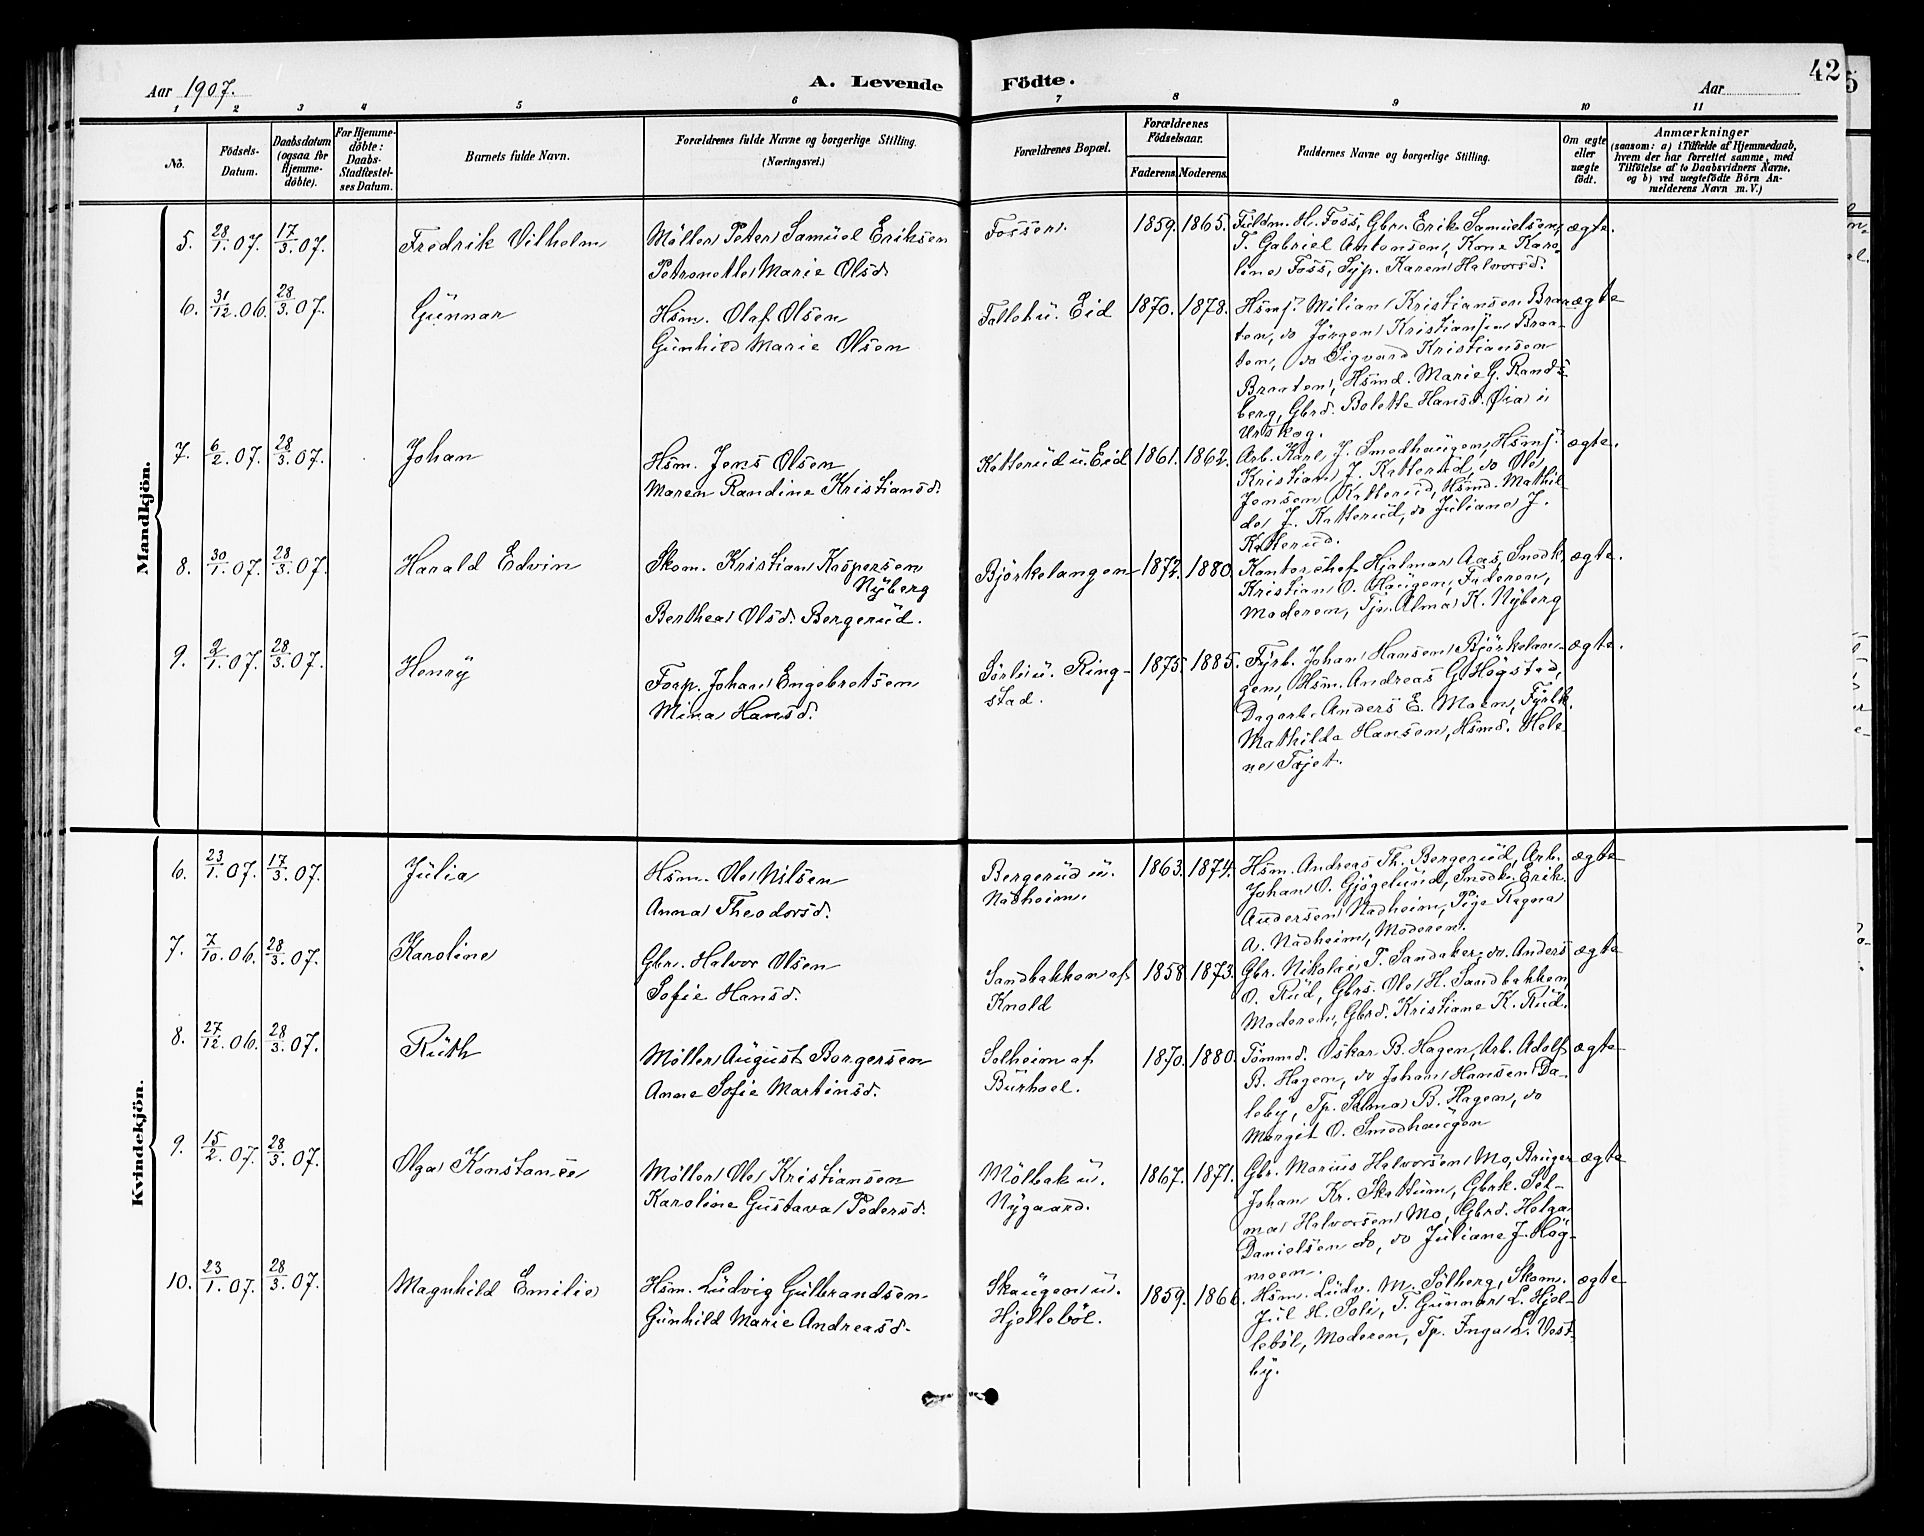 Aar 1907. A. Levende Födte. Aar 42
1 2 3 4 5 6 7 8 9 10 11
No.
Födsels-
Datum.
Daabsdatum
(ogsaa for
Hjemme-
döbte).
For Hjemme-
döbte:
Daabs-
Stadfæstel-
ses Datum.
Barnets fulde Navn.
Forældrenes fulde Navne og borgerlige Stilling.
(Næringsvei.)
Forældrenes Bopæl.
Forældrenes
Födselsaar.
Faderens. Moderens.
Faddernes Navne og borgerlige Stilling.
Om ægte
eller
uægte
födt.
Anmærkninger
(saasom: a) i Tilfælde af Hjemmedaab,
hvem der har forrettet samme, med
Tilföielse af to Daabsvidners Navne.
og b) ved uægtefödte Börn An-
melderens Navn m. V.)
Mandkjön.
5. 28/1.07. 17/3.07. Fredrik Vilhelm
Möller Peter Samuel Eriksen
Petronelle Marie Olsd.
Fosser. 1859. 1865.
Fuldm. H. Foss, Gbr. Erik Samuelsen,
T. Gabriel Antonsen, Kone Karo-
line Foss, Syp. Karen Halvorsd.
ægte.
6. 31/12.06. 28/3.07. Gunnar
Hsm. Olaf Olsen
Gunhild Marie Olsen
Eid 1870. 1878.
Hsmf. Milian Kristiansen Braa-
ten, do Jörgen Kristiansen Braa-
ten, do Sigvard Kristiansen
Braaten, Hsmd. Marie G. Rands-
berg, Gbrd. Bolette Hansd. Öia i
Urskog.
ægte
7. 6/2.07. 28/3.07. Johan
Hsm. Jens Olsen
Maren Randine Kristiansd.
Katterud u. Eid 1861. 1862.
Arb. Karl J. Smedhaugen, Hsmf.
Kristian J. Katterud, do Ole
Jensen Katterud, Hsmd. Mathil-
de J. Katterud, do Juliane J.
Katterud.
ægte.
8. 30/1.07. 28/3.07. Harald Edvin
Skom. Kristian Kaspersen
Nyberg
Berthea Olsd. Bergerud.
Björkelangen 1872. 1880.
Kontorchef Hjalmar Aas, Snedk.
Kristian O. Haugen, Faderen,
Moderen, Tj. Alma K. Nyberg
ægte.
9. 2/1.07. 28/3.07. Henry
Forp. Johan Engebretsen
Mina Hansd.
Sörli u. Ring-
stad.
1875. 1885.
Fyrb. Johan Hansen Björkelan-
gen, Hsm. Andreas G. Högsted,
Dagarb. Anders E. Moen, Fyrbk.
Mathilda Hansen, Hsmd. Hele-
ne Tajet.
ægte.
Kvindekjön.
6. 23/1.07. 17/3.07. Julia
Hsm. Ole Nilsen
Anna Theodorsd.
Bergerud u.
Nadheim.
1863. 1874.
Hsm. Andreas Th. Bergerud, Arb.
Johan O. Gjögelund, Snedk. Erik
Andersen Nadheim, Pige Ragna
A. Nadheim, Moderen.
ægte
7. 7/10.06. 28/3.07. Karoline
Gbr. Halvor Olsen
Sofie Hansd.
Sandbakken af
Knold
1858. 1873.
Gbr. Nikolai T. Sandaker, do Anders
O. Rud, Gbrs. Ole H. Sandbakken,
Moderen, Gbrd. Kristiane K. Rud.
ægte
8. 27/12.06. 28/3.07. Ruth
Möller August Borgersen
Anne Sofie Martinsd.
Solheim af
Burhoel.
1870. 1880.
Tömmd. Oskar B. Hagen, Arb. Adolf
B. Hagen, do Johan Hansen Da-
leby, Tp. Selma B. Hagen, do
Margit O. Smedhaugen
ægte
9. 15/2.07. 28/3.07. Olga Konstanse
Möller Ole Kristiansen
Karoline Gustava Pedersd.
Mölbak u.
Nygaard.
1867. 1871.
Gbr. Marius Halvorsen Mo, Bruger
Johan Kr. Skattum, Gbrk. Sel-
ma Halvorsen Mo, Gbrd. Helga
Danielsen do, do Juliane J. Hög-
moen.
ægte
10. 23/1.07. 28/3.07. Magnhild Emilie
Hsm. Ludvig Gulbrandsen
Gunhild Marie Andreasd.
Skaugen u.
Hjelleböl.
1859. 1866.
Hsm. Ludv. M. Solberg, Skom.
Jul H. Soli, T. Gunnar L. Hjel-
leböl, Moderen, Tp. Inga L. Vest-
by.
ægte